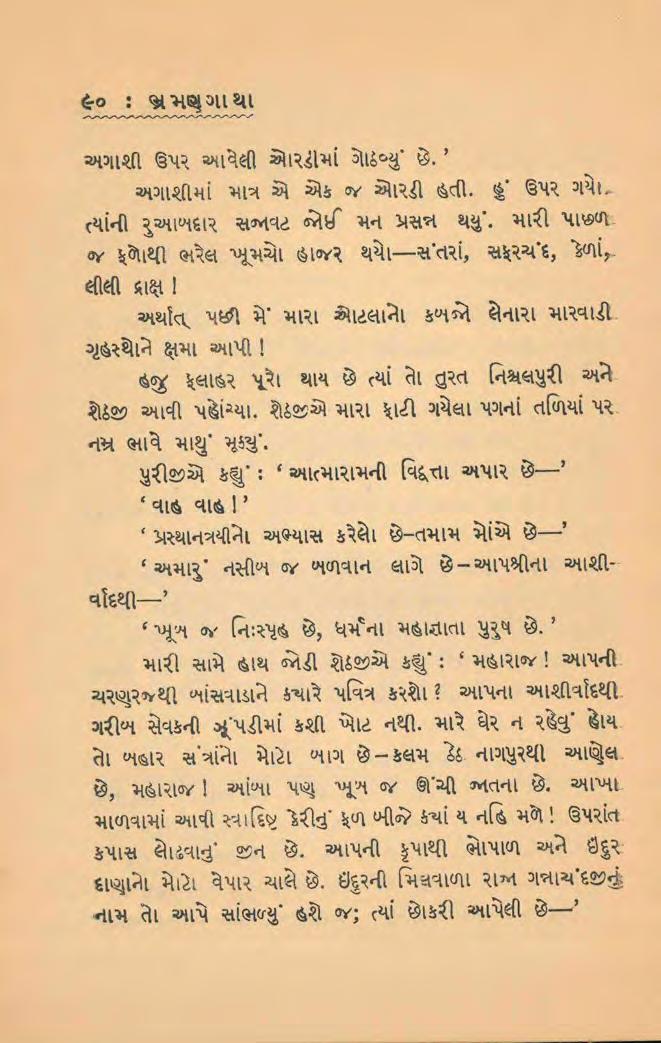 ૯૦ : ભ્રમણગાથા
અગાશી ઉપર આવેલી ઓરડીમાં ગોઠવ્યું છે.’
અગાશીમાં માત્ર એ એક જ ઓરડી હતી. હું ઉપર ગયો.
ત્યાંની રુઆબદાર સજાવટ જોઈ મન પ્રસન્ન થયું. મારી પાછળ
જ ફળોથી ભરેલ ખૂમચો હાજર થયો—સંતરાં, સફરચંદ, કેળાં,
લીલી દ્રાક્ષ !
અર્થાત્ પછી મેં મારા ઓટલાનો કબજો લેનારા મારવાડી
ગૃહસ્થોને ક્ષમા આપી !
હજુ ફલાહર પૂરો થાય છે ત્યાં તો તુરત નિશ્ચલપુરી અને
શેઠજી આવી પહોંચ્યા. શેઠજીએ મારા ફાટી ગયેલા પગનાં તળિયાં પર
નમ્ર ભાવે માથું મૂક્યું.
પુરીજીએ કહ્યું : ‘ આત્મારામની વિદ્વત્તા અપાર છે—’
‘ વાહ વાહ !’
‘ પ્રસ્થાનત્રયીનો અભ્યાસ કરેલો છે–તમામ મોંએ છે—’
‘ અમારું નસીબ જ બળવાન લાગે છે – આપશ્રીના આશી-
ર્વાદથી—’
‘ ખૂબ જ નિઃસ્પૃહ છે, ધર્મના મહાજ્ઞાતા પુરુષ છે. ’
મારી સામે હાથ જોડી શેઠજીએ કહ્યું : ‘ મહારાજ ! આપની
ચરણરજથી બાંસવાડાને કયારે પવિત્ર કરશો ? આપના આશીર્વાદથી
ગરીબ સેવકની ઝૂંપડીમાં કશી ખોટ નથી. મારે ઘેર ન રહેવું હોય
તો બહાર સંત્રાંનો મોટો બાગ છે – કલમ ઠેઠ નાગપુરથી આણેલ
છે, મહારાજ ! આંબા પણ ખૂબ જ ઊંચી જાતના છે. આખા
માળવામાં આવી સ્વાદિષ્ટ કેરીનું ફળ બીજે કયાં ય નહિ મળે ! ઉપરાંત
કપાસ લોઢવાનું જીન છે. આપની કૃપાથી ભોપાળ અને ઇંદુર
દાણાનો મોટો વેપાર ચાલે છે. ઇંદુરની મિલવાળા રાજા ગન્નાચંદજીનું
નામ તો આપે સાંભળ્યું હશે જ; ત્યાં છોકરી આપેલી છે—’